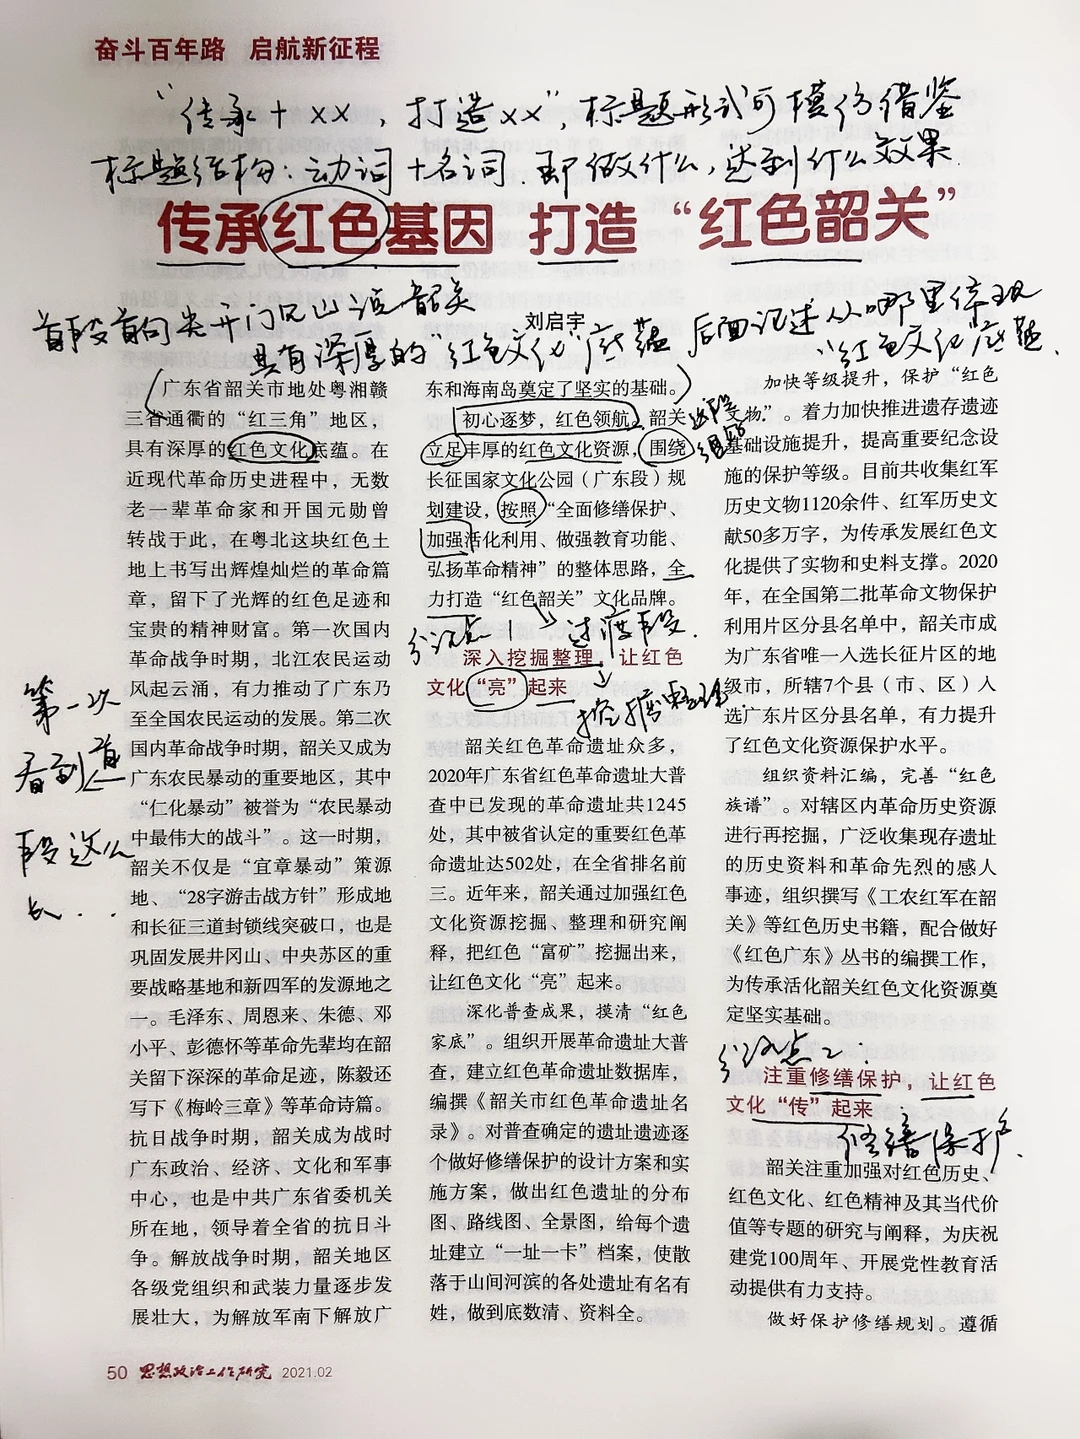 奋斗百年路 启航新征程
“传承+xx，打造xx”，标题形式可模仿借鉴
标题结构：动词+名词．即做什么，达到什么效果．
传承红色基因 打造“红色韶关”
首段首句先开门见山说韶关
具有深厚的“红色文化”底蕴
后面记述从哪里体现
“红色文化”底蕴．
刘启宇
广东省韶关市地处粤湘赣
三省通衢的“红三角”地区，
具有深厚的红色文化底蕴。在
近现代革命历史进程中，无数
老一辈革命家和开国元勋曾
转战于此，在粤北这块红色土
地上书写出辉煌灿烂的革命篇
章，留下了光辉的红色足迹和
宝贵的精神财富。第一次国内
革命战争时期，北江农民运动
风起云涌，有力推动了广东乃
至全国农民运动的发展。第二次
国内革命战争时期，韶关又成为
广东农民暴动的重要地区，其中
“仁化暴动”被誉为“农民暴动
中最伟大的战斗”。这一时期，
韶关不仅是“宜章暴动”策源
地、“28字游击战方针”形成地
和长征三道封锁线突破口，也是
巩固发展井冈山、中央苏区的重
要战略基地和新四军的发源地之
一。毛泽东、周恩来、朱德、邓
小平、彭德怀等革命先辈均在韶
关留下深深的革命足迹，陈毅还
写下《梅岭三章》等革命诗篇。
抗日战争时期，韶关成为战时
广东政治、经济、文化和军事
中心，也是中共广东省委机关
所在地，领导着全省的抗日斗
争。解放战争时期，韶关地区
各级党组织和武装力量逐步发
展壮大，为解放军南下解放广
第一次
看到首
段这么
长...
东和海南岛奠定了坚实的基础。
初心逐梦，红色领航。韶关
立足丰厚的红色文化资源，围绕
长征国家文化公园（广东段）规
划建设，按照“全面修缮保护、
加强活化利用、做强教育功能、
弘扬革命精神”的整体思路，全
力打造“红色韶关”文化品牌。
过渡段．
分论点1
深入挖掘整理，让红色
文化“亮”起来
挖掘整理．
韶关红色革命遗址众多，
2020年广东省红色革命遗址大普
查中已发现的革命遗址共1245
处，其中被省认定的重要红色革
命遗址达502处，在全省排名前
三。近年来，韶关通过加强红色
文化资源挖掘、整理和研究阐
释，把红色“富矿”挖掘出来，
让红色文化“亮”起来。
深化普查成果，摸清“红色
家底”。组织开展革命遗址大普
查，建立红色革命遗址数据库，
编撰《韶关市红色革命遗址名
录》。对普查确定的遗址遗迹逐
个做好修缮保护的设计方案和实
施方案，做出红色遗址的分布
图、路线图、全景图，给每个遗
址建立“一址一卡”档案，使散
落于山间河滨的各处遗址有名有
姓，做到底数清、资料全。
加快等级提升，保护“红色
文物”。着力加快推进遗存遗迹
基础设施提升，提高重要纪念设
施的保护等级。目前共收集红军
历史文物1120余件、红军历史文
献50多万字，为传承发展红色文
化提供了实物和史料支撑。2020
年，在全国第二批革命文物保护
利用片区分县名单中，韶关市成
为广东省唯一入选长征片区的地
级市，所辖7个县（市、区）入
选广东片区分县名单，有力提升
了红色文化资源保护水平。
组织资料汇编，完善“红色
族谱”。对辖区内革命历史资源
进行再挖掘，广泛收集现存遗址
的历史资料和革命先烈的感人
事迹，组织撰写《工农红军在韶
关》等红色历史书籍，配合做好
《红色广东》丛书的编撰工作，
为传承活化韶关红色文化资源奠
定坚实基础。
分论点2：
注重修缮保护，让红色
文化“传”起来
修缮保护．
韶关注重加强对红色历史、
红色文化、红色精神及其当代价
值等专题的研究与阐释，为庆祝
建党100周年、开展党性教育活
动提供有力支持。
做好保护修缮规划。遵循
50 思想政治工作研究 2021.02